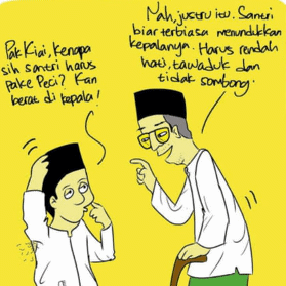 Pak Kiai, kenapa
sih santri harus
Pake Peci? Kan
berat di kepala!
Nah, justru itu. Santri
biar terbiasa menundukkan
kepalanya. Harus rendah
hati, tawaduk dan
tidak sombong.